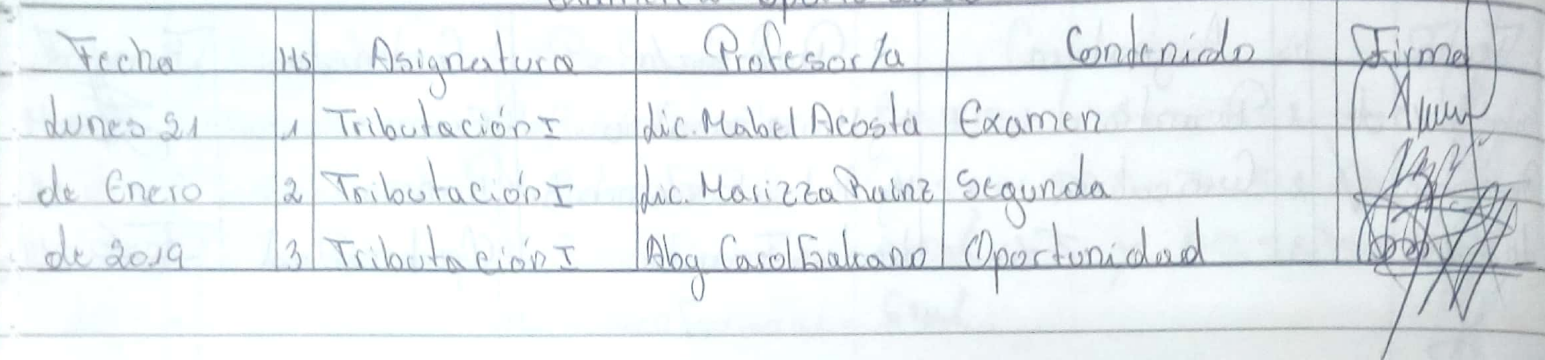 Fecha Hs Asignatura Profesor/a Contenido Firma
Lunes 21 1 Tributación I Lic. Mabel Acosta Examen
de Enero 2 Tributación I Lic. Marizza Segunda
de 2019 3 Tributación I Abg Carol Galeano Oportunidad